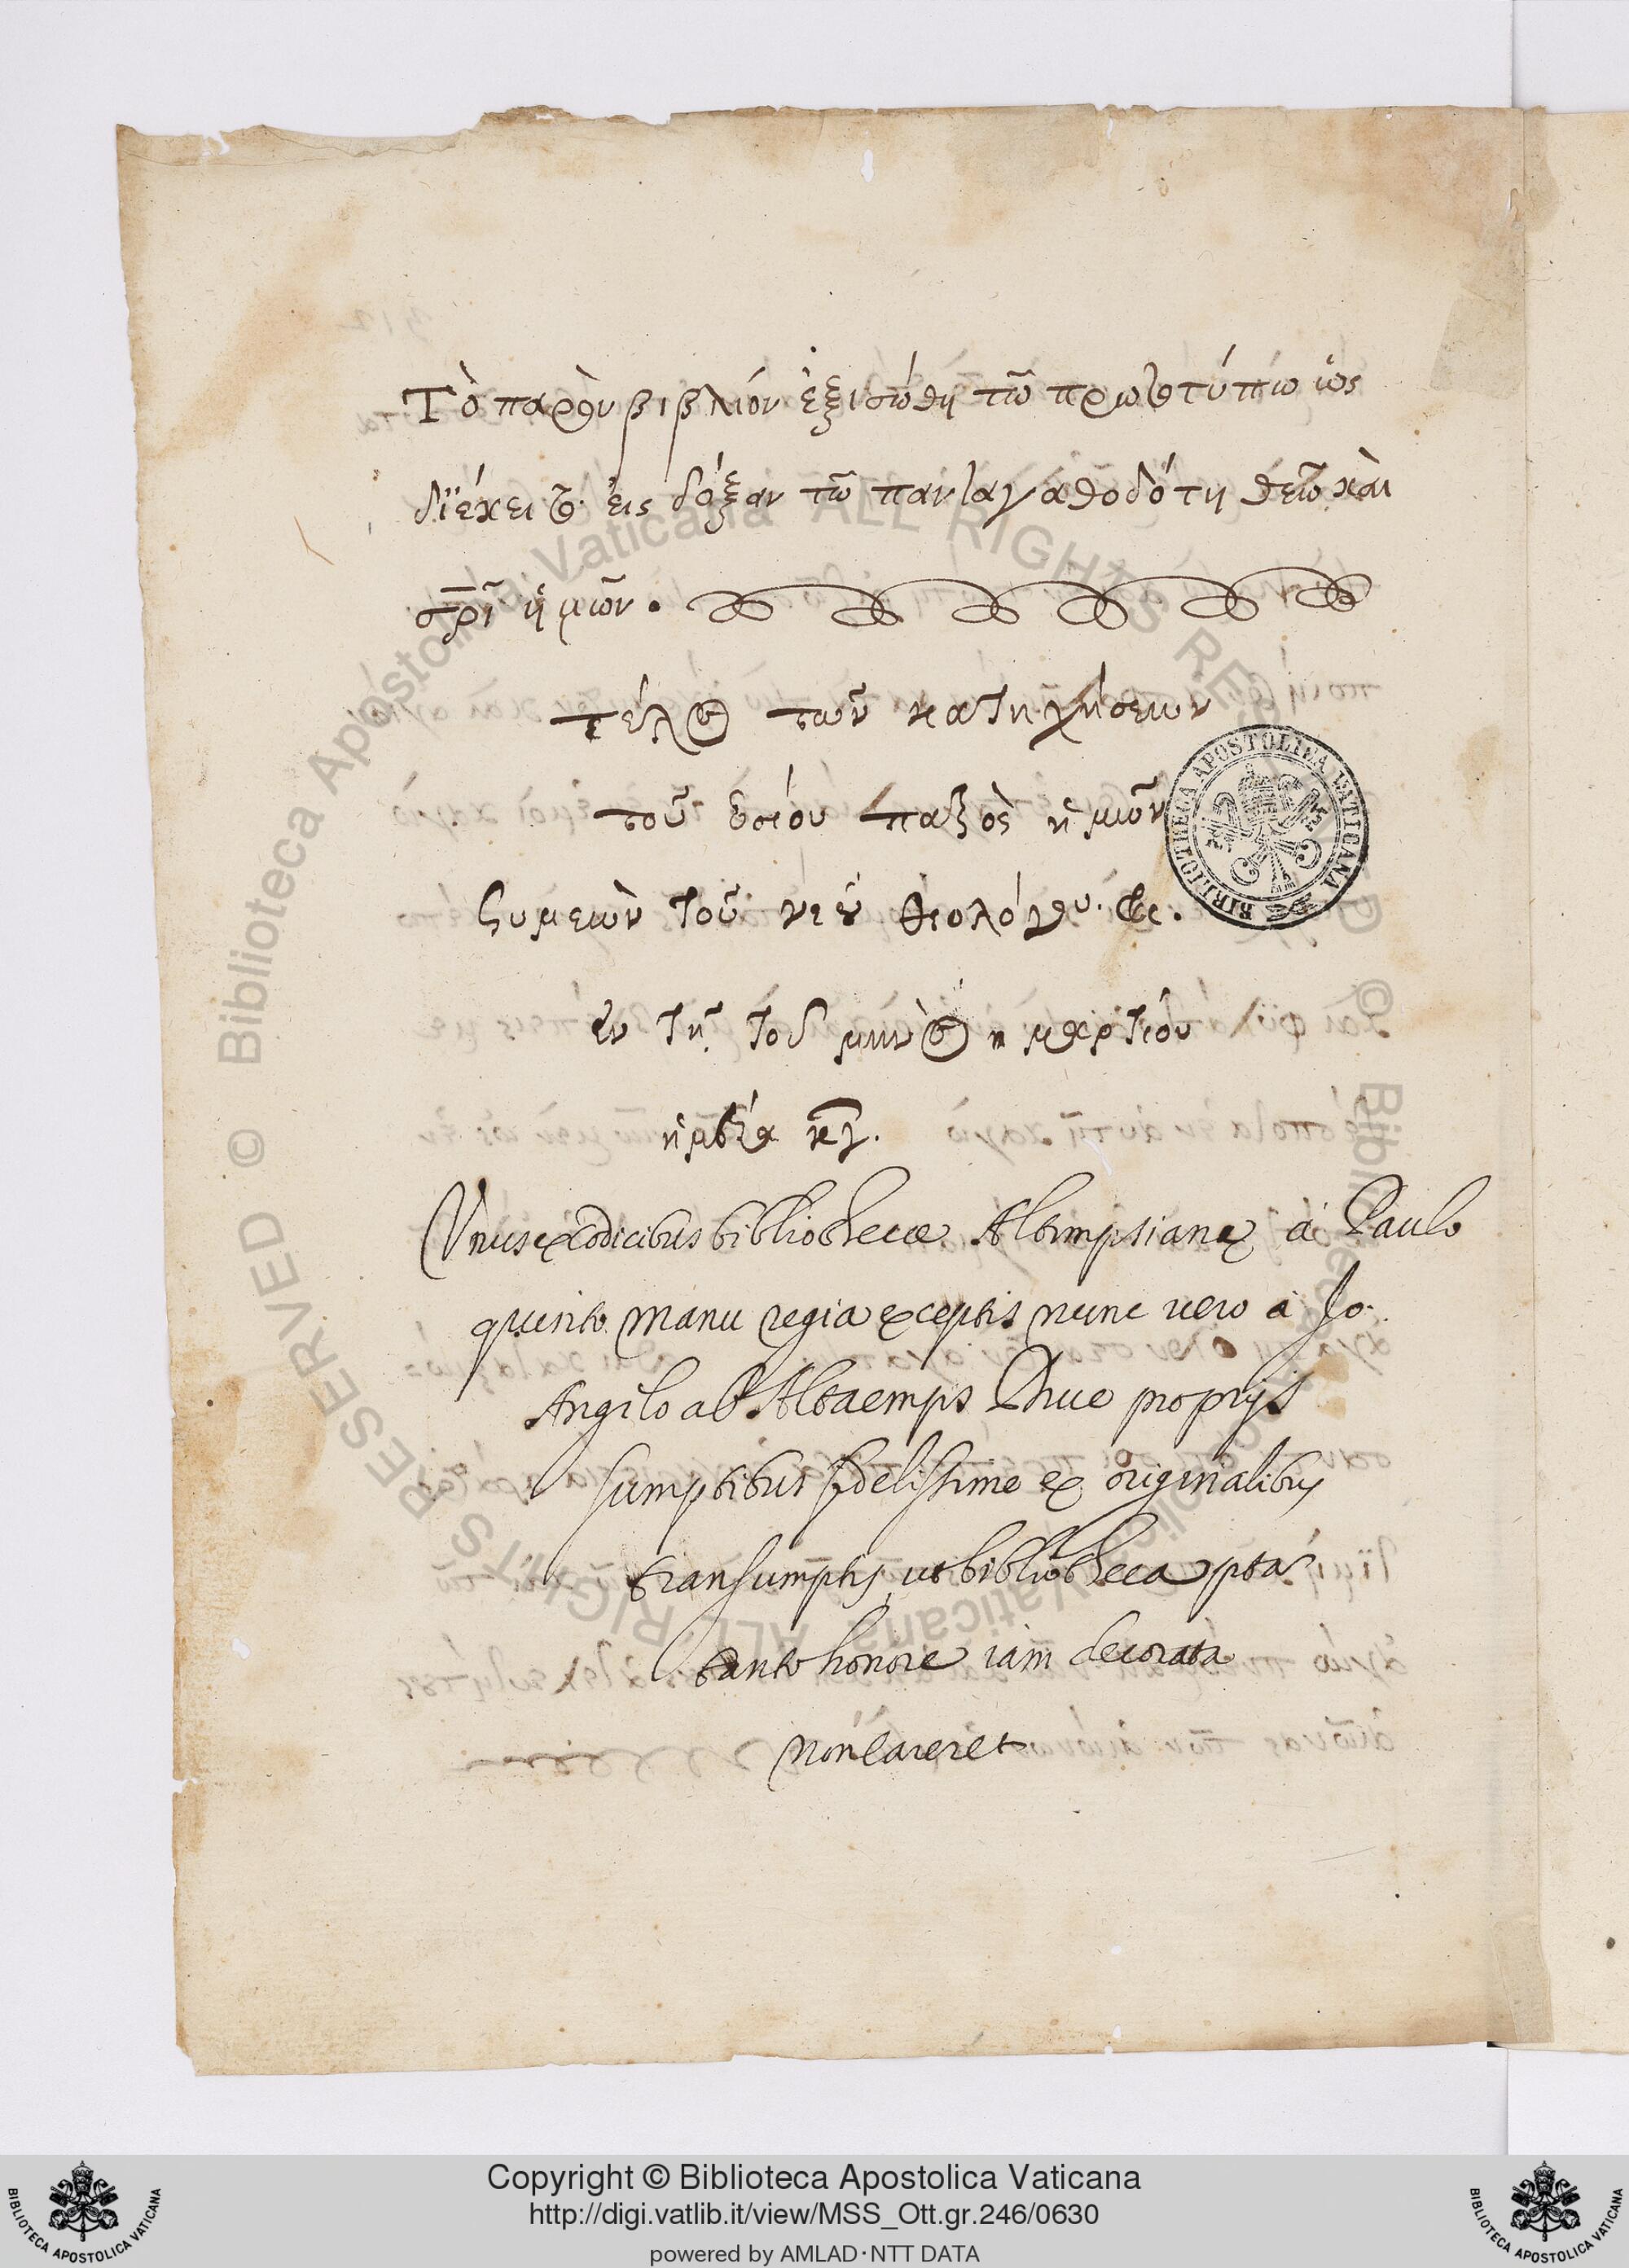 Τὸ παρὸν βιβλίον ἐξισώθη τῶ πρωτοτύπω ὡς
διέκειτο· εἰς δόξαν τῶ πανταγαθοδότη θεῶ καὶ
σ̅ρ̅ι ἡμῶν.
τέλος τῶν κατηχήσεων
τοῦ ὁσίου πατρὸς ἡμῶν
Συμεὼν τοῦ νέου θεολόγου.
ἐν τῇ τοῦ μηνὸς μαρτίου
ἡμέρα κγ.
Vnus ex Codicibus bibliothecae Altempsianę à Paulo
quinto manu regia exceptis nunc uero à Jo.
Angelo ab Altaemps Duce proprijs
sumptibus fidelissime ex originalibus
transumptis, ut bibliotheca pta
tanto honore iam decorata
non careret
BIBLIOTHECA APOSTOLICA VATICANA
© Biblioteca Apostolica Vaticana ALL RIGHTS RESERVED
© Biblioteca Apostolica Vaticana ALL RIGHTS RESERVED
Copyright © Biblioteca Apostolica Vaticana
http://digi.vatlib.it/view/MSS_Ott.gr.246/0630
powered by AMLAD·NTT DATA
BIBLIOTECA APOSTOLICA VATICANA
BIBLIOTECA APOSTOLICA VATICANA